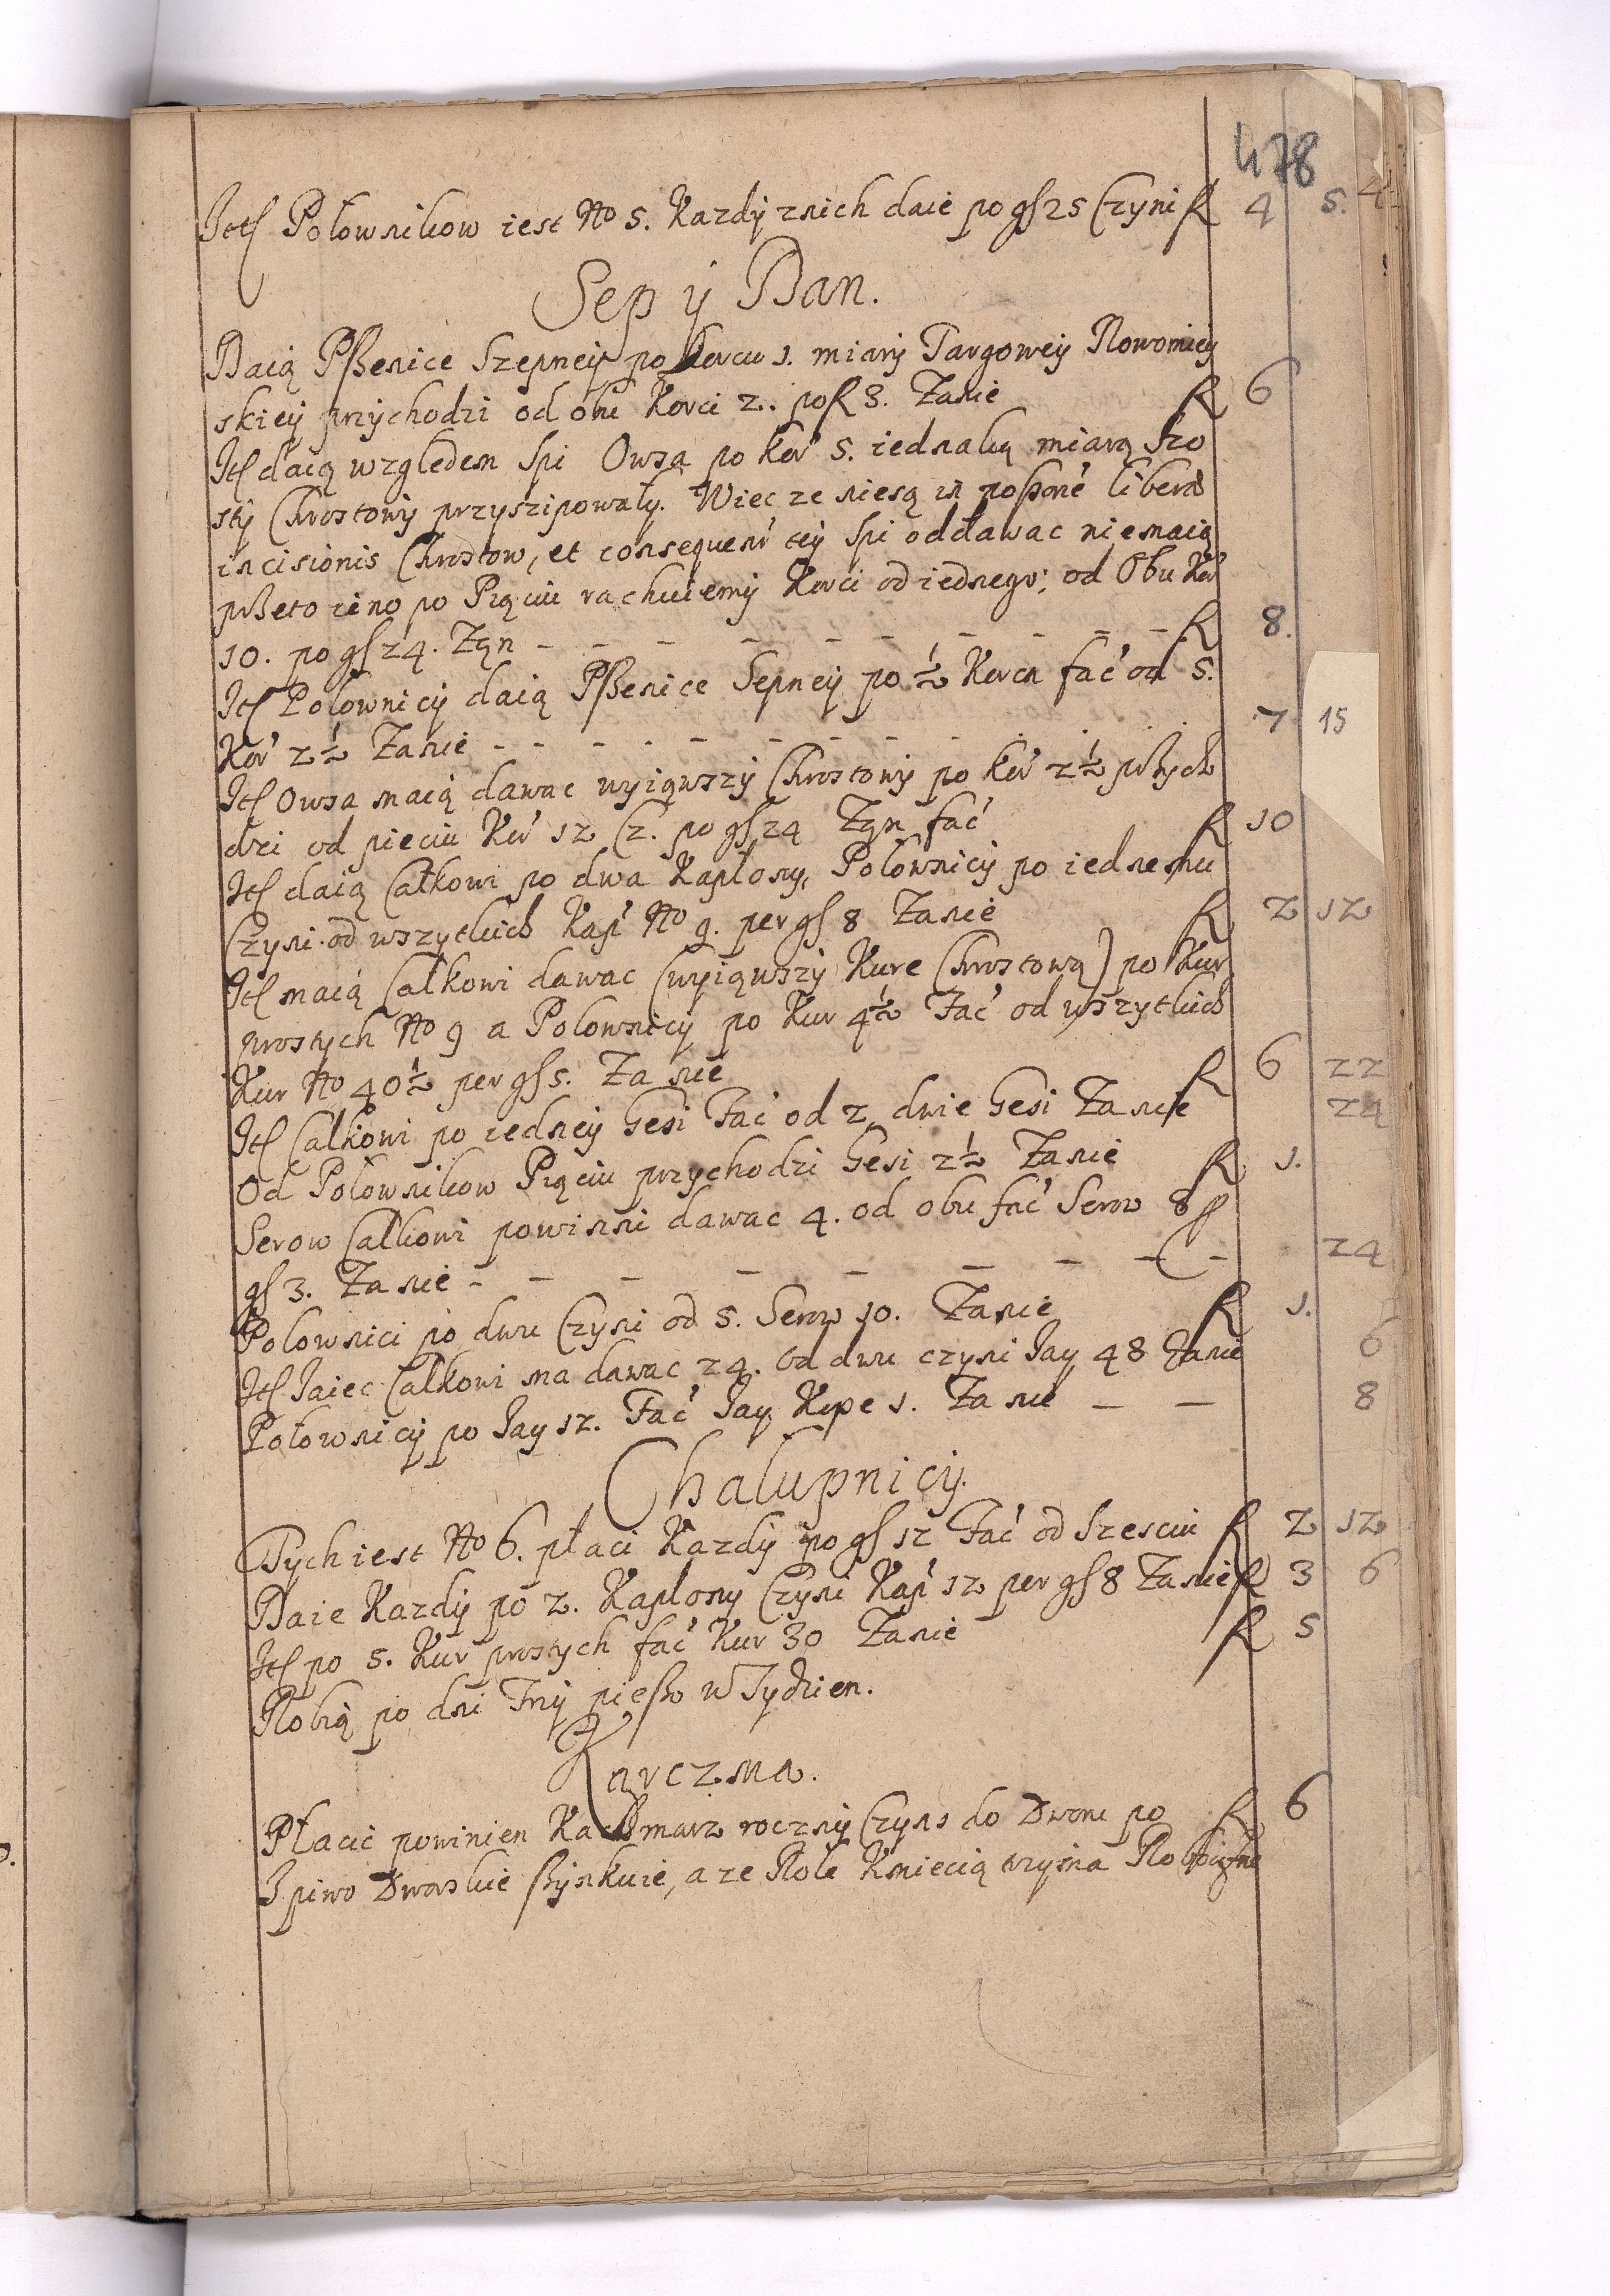 478
Itß Połownikow iest No 5. Kazdÿ znich daie po gß 25 Czyni R 4 5.
Sep ÿ Dan.
Daią Pßenice Szepneÿ po korcu 1. miarÿ Targoweÿ Nowomieÿ
skieÿ przÿchodzi od obu Korci 2. po R 3. Zanie R 6
Itß daią wzgledem Spi Owsa po kor 5. iednaką miarą Szo
stÿ Chrostowÿ przyszipowałÿ. Wiec ze niesą in poßone libera
incisionis Chrostow, et consequenr teÿ Spi oddawac niemaią
pßeto ieno po Piąciu rachuiemÿ Korci od iednego; od Obu Kor
10. po gß 24. Ząn - - - - - - - - - R 8.
Itß Połownicÿ daią Pßenice Sepneÿ po ½ Korca fać od 5.
Kor 2½ Zanie - - - - - - - - - - 7 15
Itß Owsa maią dawac wyiąwszÿ Chrostowÿ po kor 2½ pßÿcho
dzi od pieciu Kor 12 Cz. po gß 24 Ząn fać R 10
Itß daią Całkowi po dwa Kapłony, Połownicÿ po iednemu
Czyni od wszytkich Kap No 9. per gß 8 Zanie R 2 12
Itß maią Całkowi dawac (wyiąwszÿ Kure Chrostową) po Kur
prostych No 9 a Połownicÿ po Kur 4½ Fać od wszytkich
Kur No 40½ per gß 5. Zanie R 6 22
Itß Całkowi po iedneÿ Gesi Fać od 2 dwie Gesi Zanie 24
Od Połownikow Piąciu przychodzi Gesi 2½ Zanie R 1.
Serow Całkowi powinni dawac 4. od obu fać Serow 8 p
gß 3. Zanie - - - - - - - - - 24
Połownici po dwu Czyni od 5. Serow 10. Zanie R 1.
Itß Jaiec Całkowi ma dawac 24. Od dwu czyni Jay 48 Zanie 6
Połownicÿ po Jay 12. Fać Jay Kope 1. Zanie - - 8
Chałupnicÿ.
Tych iest No 6. płaci Kazdÿ po gß 12 Fać od Szesciu R 2 12
Daie Kazdÿ po 2. Kapłony Czyni Kap 12 per gß 8 Zanie R 3 6
Itß po 5. Kur prostych fać Kur 30 Zanie R 5
Robią po dni Trÿ pießo w Tydzien.
Karczma.
Płacic powinien Kaczmarz rocznÿ Czyns do Dworu po R 6
I piwo Dworskie ßÿnkuie, a ze Role Kmiecią trzÿma